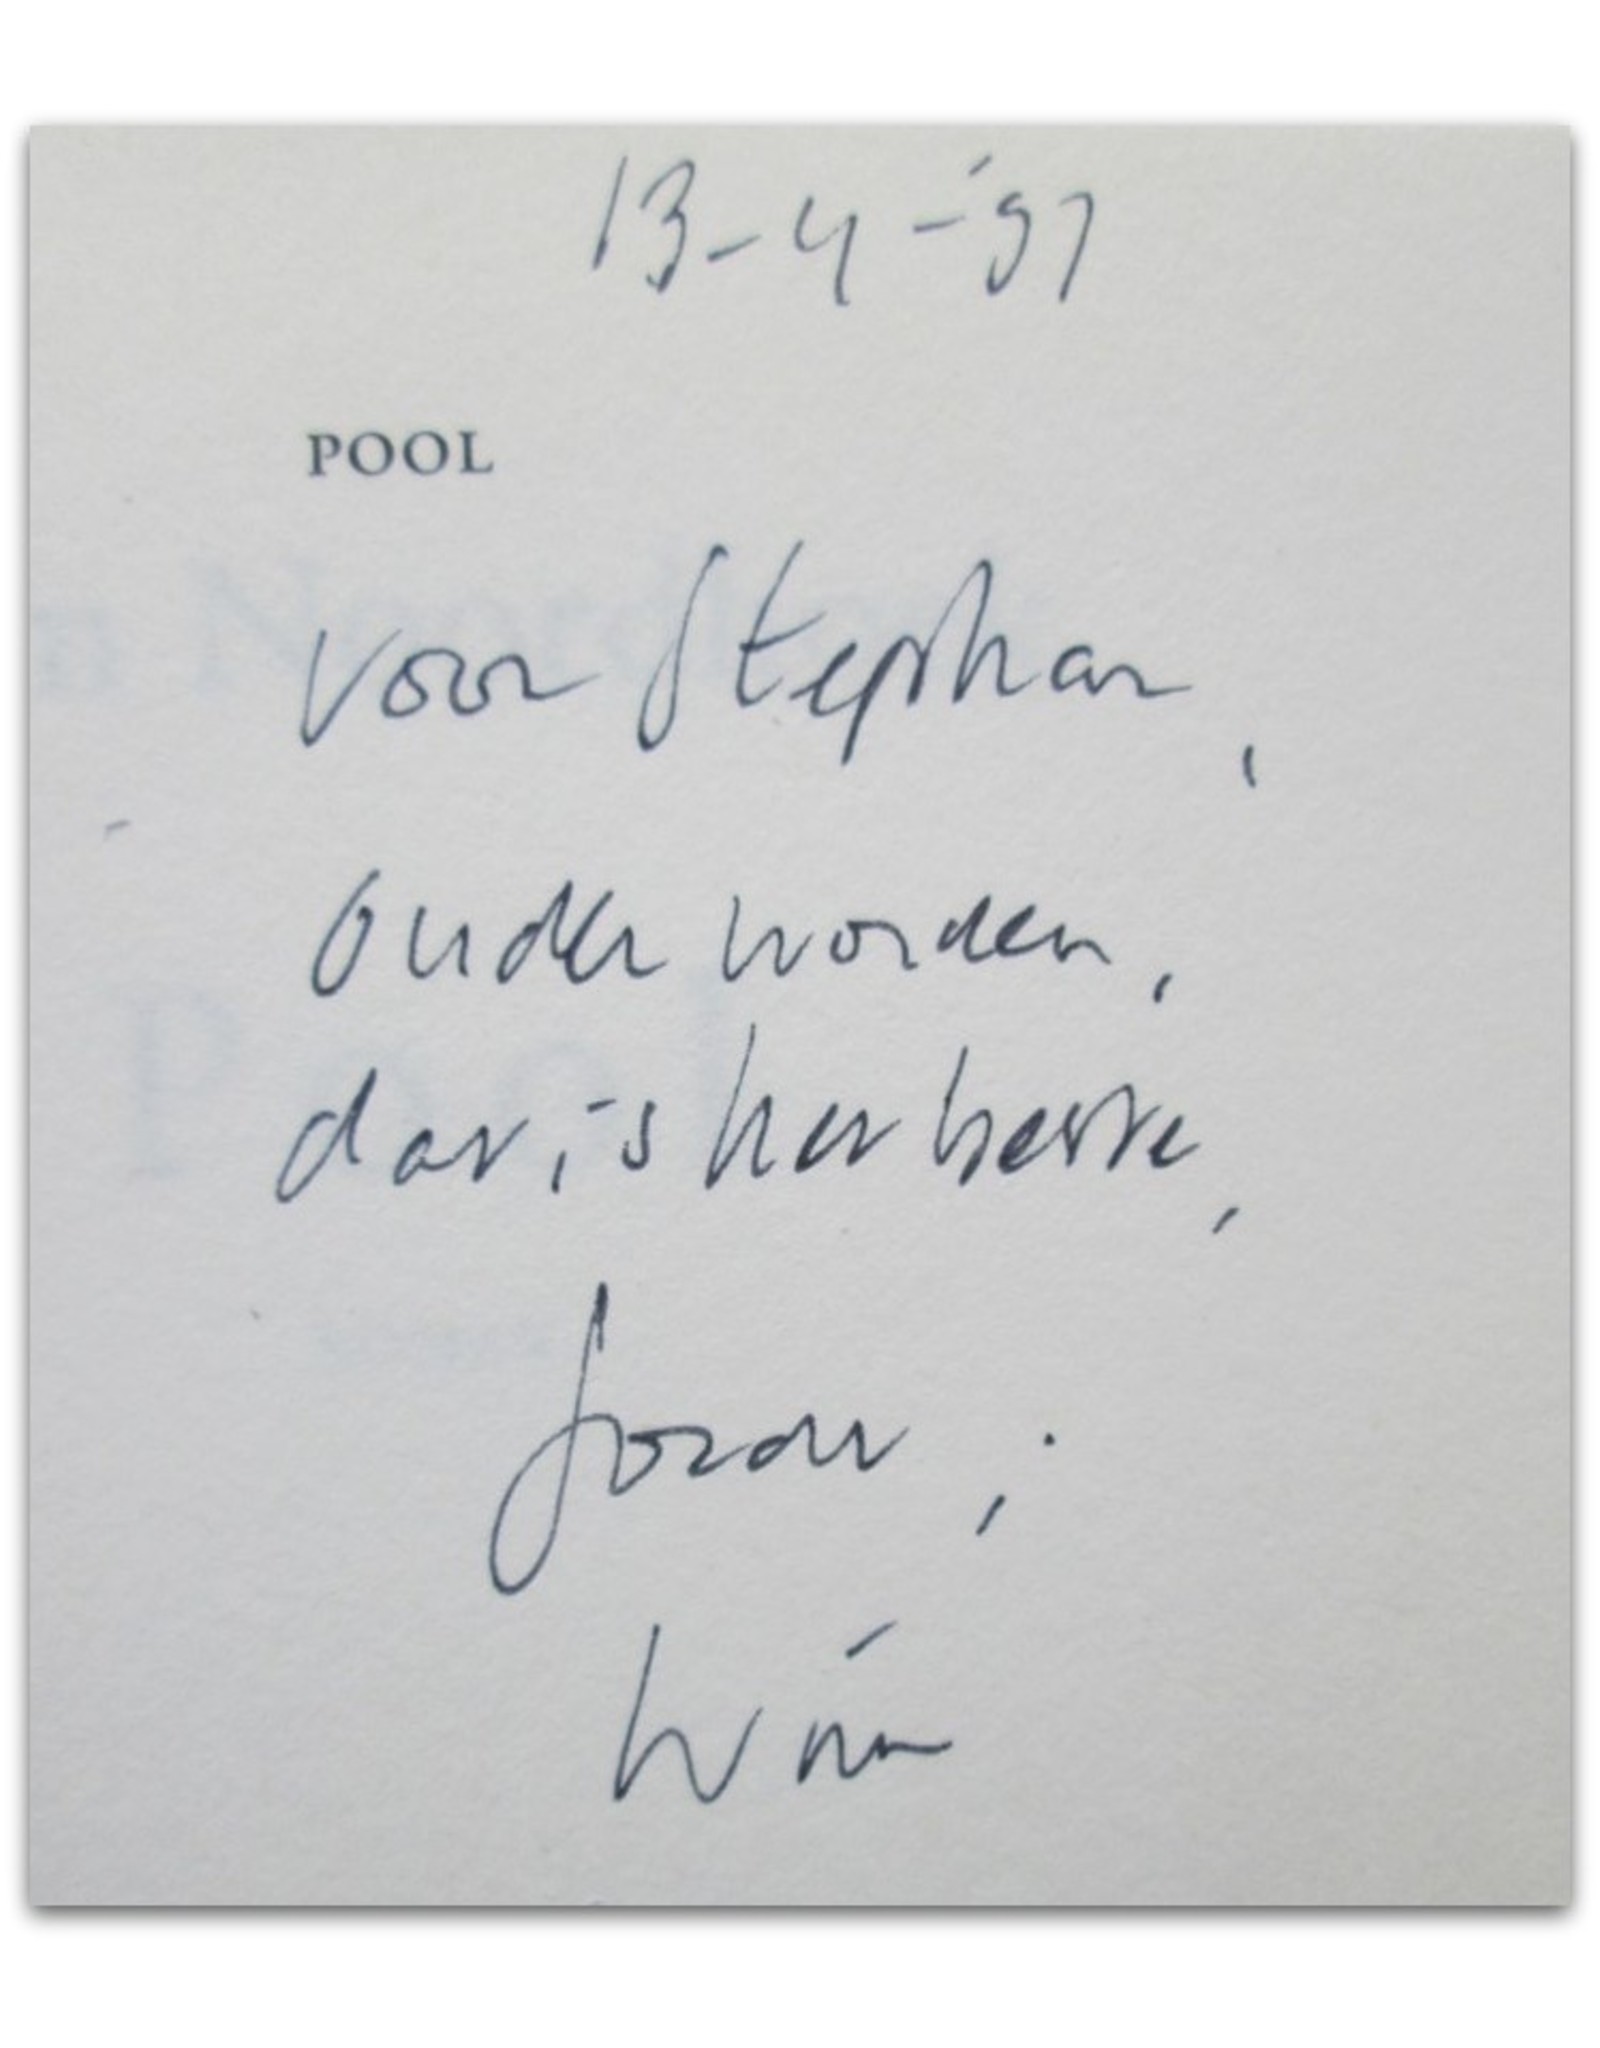 13-4-'97
POOL
voor Stephan,
ouder worden,
dat is het beste,
Wim